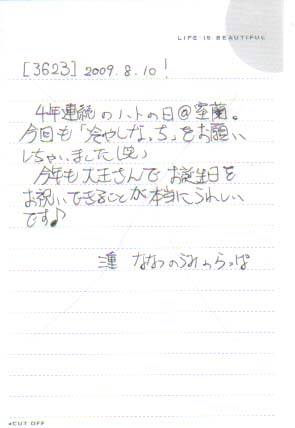 LIFE IS BEAUTIFUL
[3623] 2009.8.10!
4年連続のハートの日@室蘭。
今回も「冷やしなっち」をお願い
しちゃいました(笑)
今年も大王さんでお誕生日を
お祝いできることが本当にうれしい
です♪
三重 ななつのふれのらっぱ
CUT OFF